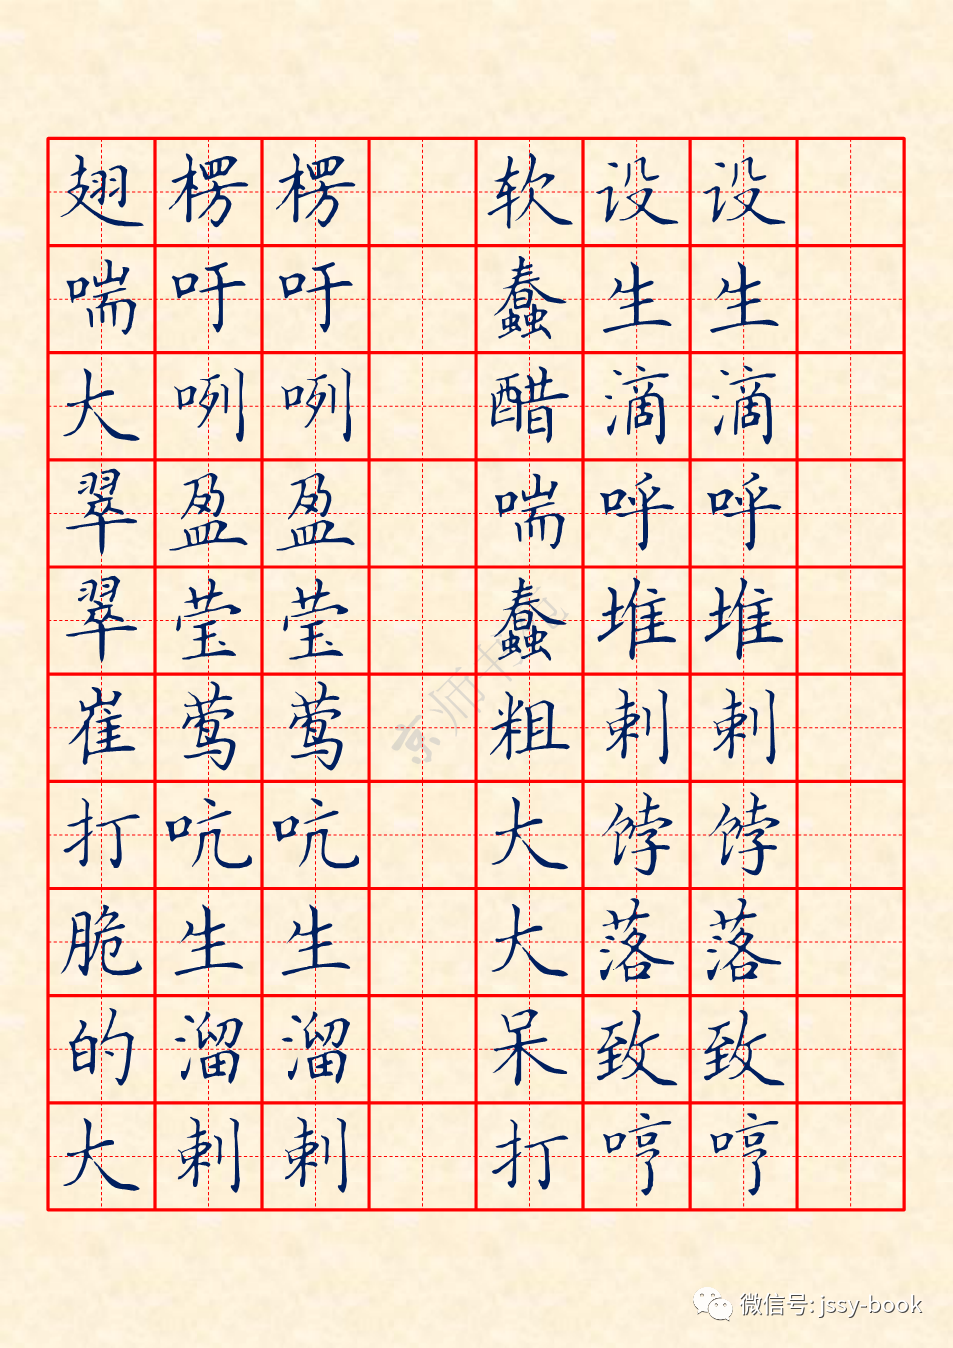 翅楞楞 软设设
喘吁吁 蠢生生
大咧咧 醋滴滴
翠盈盈 喘呼呼
翠莹莹 蠢堆堆
崔莺莺 粗剌剌
打吭吭 大饽饽
脆生生 大落落
的溜溜 呆致致
大剌剌 打哼哼
京师书苑
微信号: jssy-book